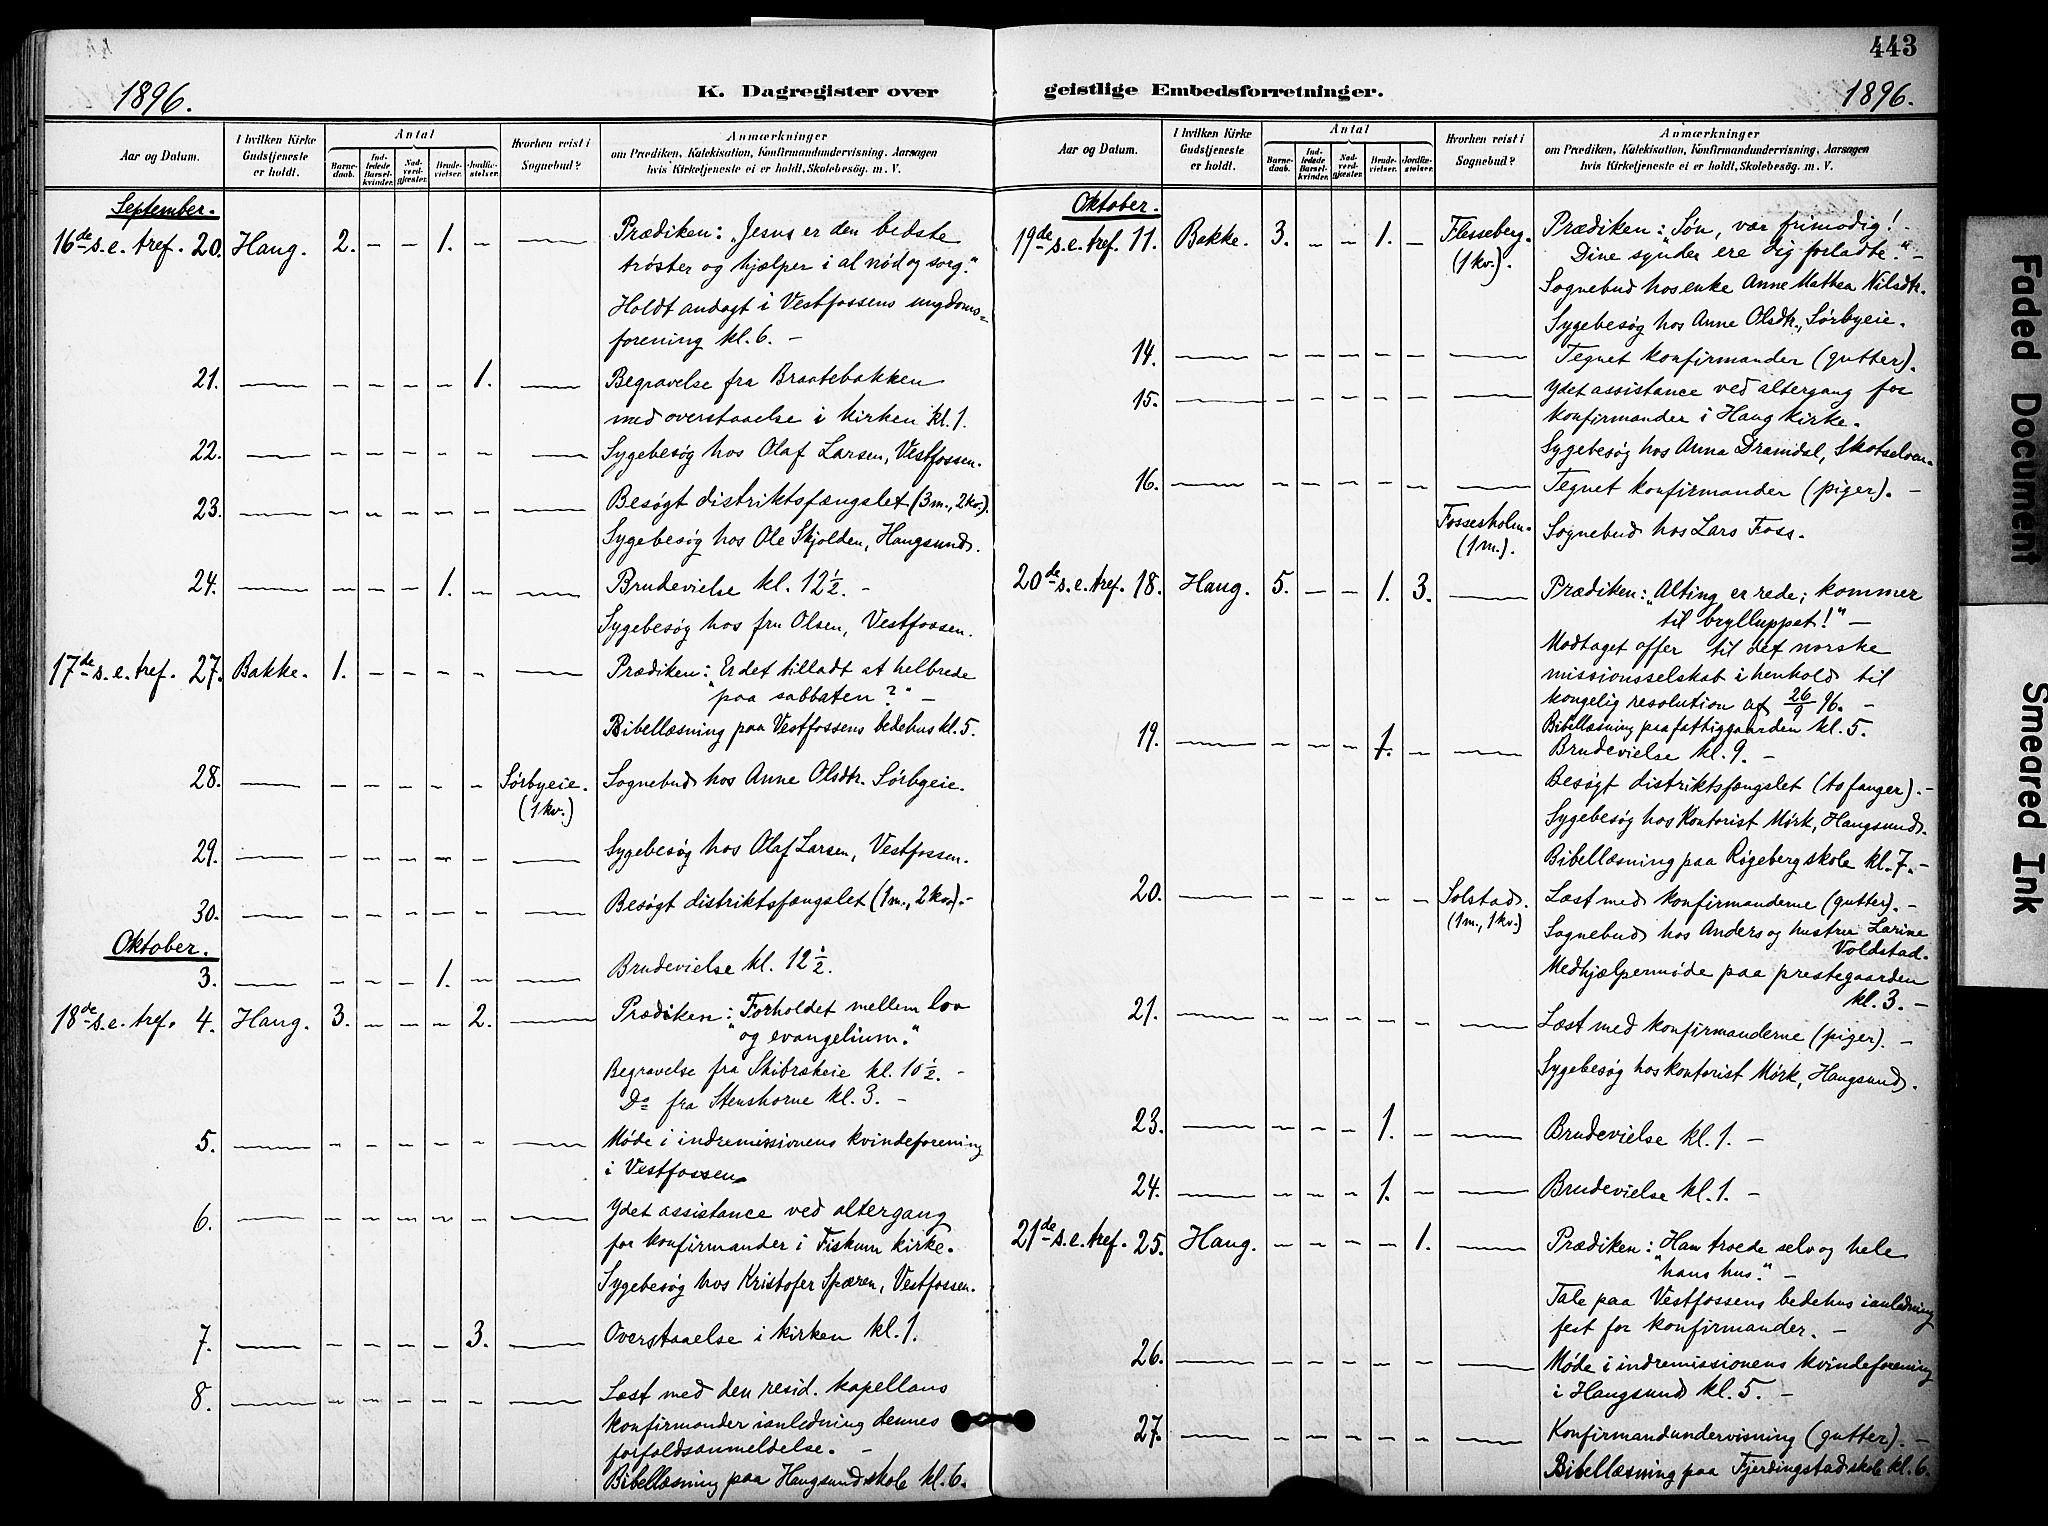 443
1896.
K. Dagregister over
Aar og Datum.
I hvilken Kirke Gudstjeneste er holdt.
Antal
Barnedaab.
Indledede Barselkvinder.
Nadverdgjester.
Brudevielser.
Jordfæstelser.
Hvorhen reist i Sognebud?
Anmærkninger
om Prædiken, Katekisation, Konfirmandundervisning, Aarsagen
hvis Kirketjeneste ei er holdt, Skolebesøg. m. V.
September.
16de s. e. tref. 20. Haug. 2. – – 1. – —— Prædiken: „Jesus er den bedste
trøster og hjælper i al nød og sorg."
Holdt andagt i Vestfossens ungdoms=
forening kl. 6. –
21. —— – – – – 1. —— Begravelse fra Braatebakken
med overstaaelse i kirken kl. 1.
22. —— – – – – – —— Sygebesøg hos Olaf Larsen, Vestfossen.
23. —— – – – – – —— Besøgt distriktsfængslet (3 m., 2 kv.).
Sygebesøg hos Ole Skjolden, Haugsund.
24. —— – – – 1. – —— Brudevielse kl. 12 1/2. –
Sygebesøg hos fru Olsen, Vestfossen.
17de s. e. tref. 27. Bakke. 1. – – – – —— Prædiken: „Er det tilladt at helbrede
paa sabbaten?" –
Bibellæsning paa Vestfossens bedehus kl. 5.
28. —— – – – – – Sørbyeie. Sognebud hos Anne Olsdtr. Sørbyeie.
(1 kv.)
29. —— – – – – – —— Sygebesøg hos Olaf Larsen, Vestfossen.
30. —— – – – – – —— Besøgt distriktsfængslet (1 m., 2 kv.). –
Oktober.
3. —— – – – 1. – —— Brudevielse kl. 12 1/2.
18de s. e. tref. 4. Haug. 3. – – – 2. —— Prædiken: „Forholdet mellem lov
og evangelium."
Begravelse fra Skibrekeie kl. 10 1/2. –
Do fra Stenshorne kl. 3. –
5. —— – – – – – —— Møde i indremissionens kvindeforening
i Vestfossen.
6. —— – – – – – —— Ydet assistance ved altergang
for konfirmander i Fiskum kirke.
Sygebesøg hos Kristofer Spæren, Vestfossen.
7. —— – – – – 3. —— Overstaaelse i kirken kl. 1.
8. —— – – – – – —— Læst med den resid. kapellans
konfirmander i anledning dennes
forfaldsanmeldelse. –
Bibellæsning paa Haugsund skole kl. 6.
geistlige Embedsforretninger.
1896.
Aar og Datum.
I hvilken Kirke Gudstjeneste er holdt.
Antal
Barnedaab.
Indledede Barselkvinder.
Nadverdgjester.
Brudevielser.
Jordfæstelser.
Hvorhen reist i Sognebud?
Anmærkninger
om Prædiken, Katekisation, Konfirmandundervisning, Aarsagen
hvis Kirketjeneste ei er holdt, Skolebesøg. m. V.
Oktober.
19de s. e. tref. 11. Bakke. 3. – – 1. – Flesseberg. Prædiken: „Søn, vær frimodig!
(1 kv.). Dine synder ere dig forladte." –
Sognebud hos enke Anne Mathea Nilsdtr.
Sygebesøg hos Anne Olsdtr., Sørbyeie.
14. —— – – – – – —— Tegnet konfirmander (gutter).
15. —— – – – – – —— Ydet assistance ved altergang for
konfirmander i Haug kirke.
Sygebesøg hos Anna Dramdal, Skotselven.
16. —— – – – – – —— Tegnet konfirmander (piger). –
Fossesholm. Sognebud hos Lars Foss.
(1 m.).
20de s. e. tref. 18. Haug. 5. – – 1. 3. —— Prædiken: „Alting er rede; kommer
til brylluppet!" –
Modtaget offer til det norske
missionsselskab i henhold til
kongelig resolution af 26/9 96. –
Bibellæsning paa fattiggaarden kl. 5.
19. —— – – – 1. – —— Brudevielse kl. 9. –
Besøgt distriktsfængslet (to fanger). –
Sygebesøg hos Kontorist Mørk, Haugsund.
Bibellæsning paa Røgeberg skole kl. 7. –
20. —— – – – – – Solstad. Læst med konfirmanderne (gutter). –
(1 m., 1 kv.) Sognebud hos Anders og hustru Larine
Voldstad.
Medhjælpermøde paa prestegaarden
kl. 3. –
21. —— – – – – – —— Læst med konfirmanderne (piger). –
Sygebesøg hos kontorist Mørk, Haugsund.
23. —— – – – 1. – —— Brudevielse kl. 1. –
24. —— – – – 1. – —— Brudevielse kl. 1. –
21de s. e. tref. 25. Haug. – – – – 1. —— Prædiken: „Han troede selv og hele
hans hus." –
Tale paa Vestfossens bedehus i anledning
fest for konfirmander. –
26. —— – – – – – —— Møde i indremissionens kvindeforening
i Haugsund kl. 5. –
27. —— – – – – – —— Konfirmandundervisning (gutter). –
Bibellæsning paa Fjerdingstad skole kl. 6.
Faded Document
Smeared Ink